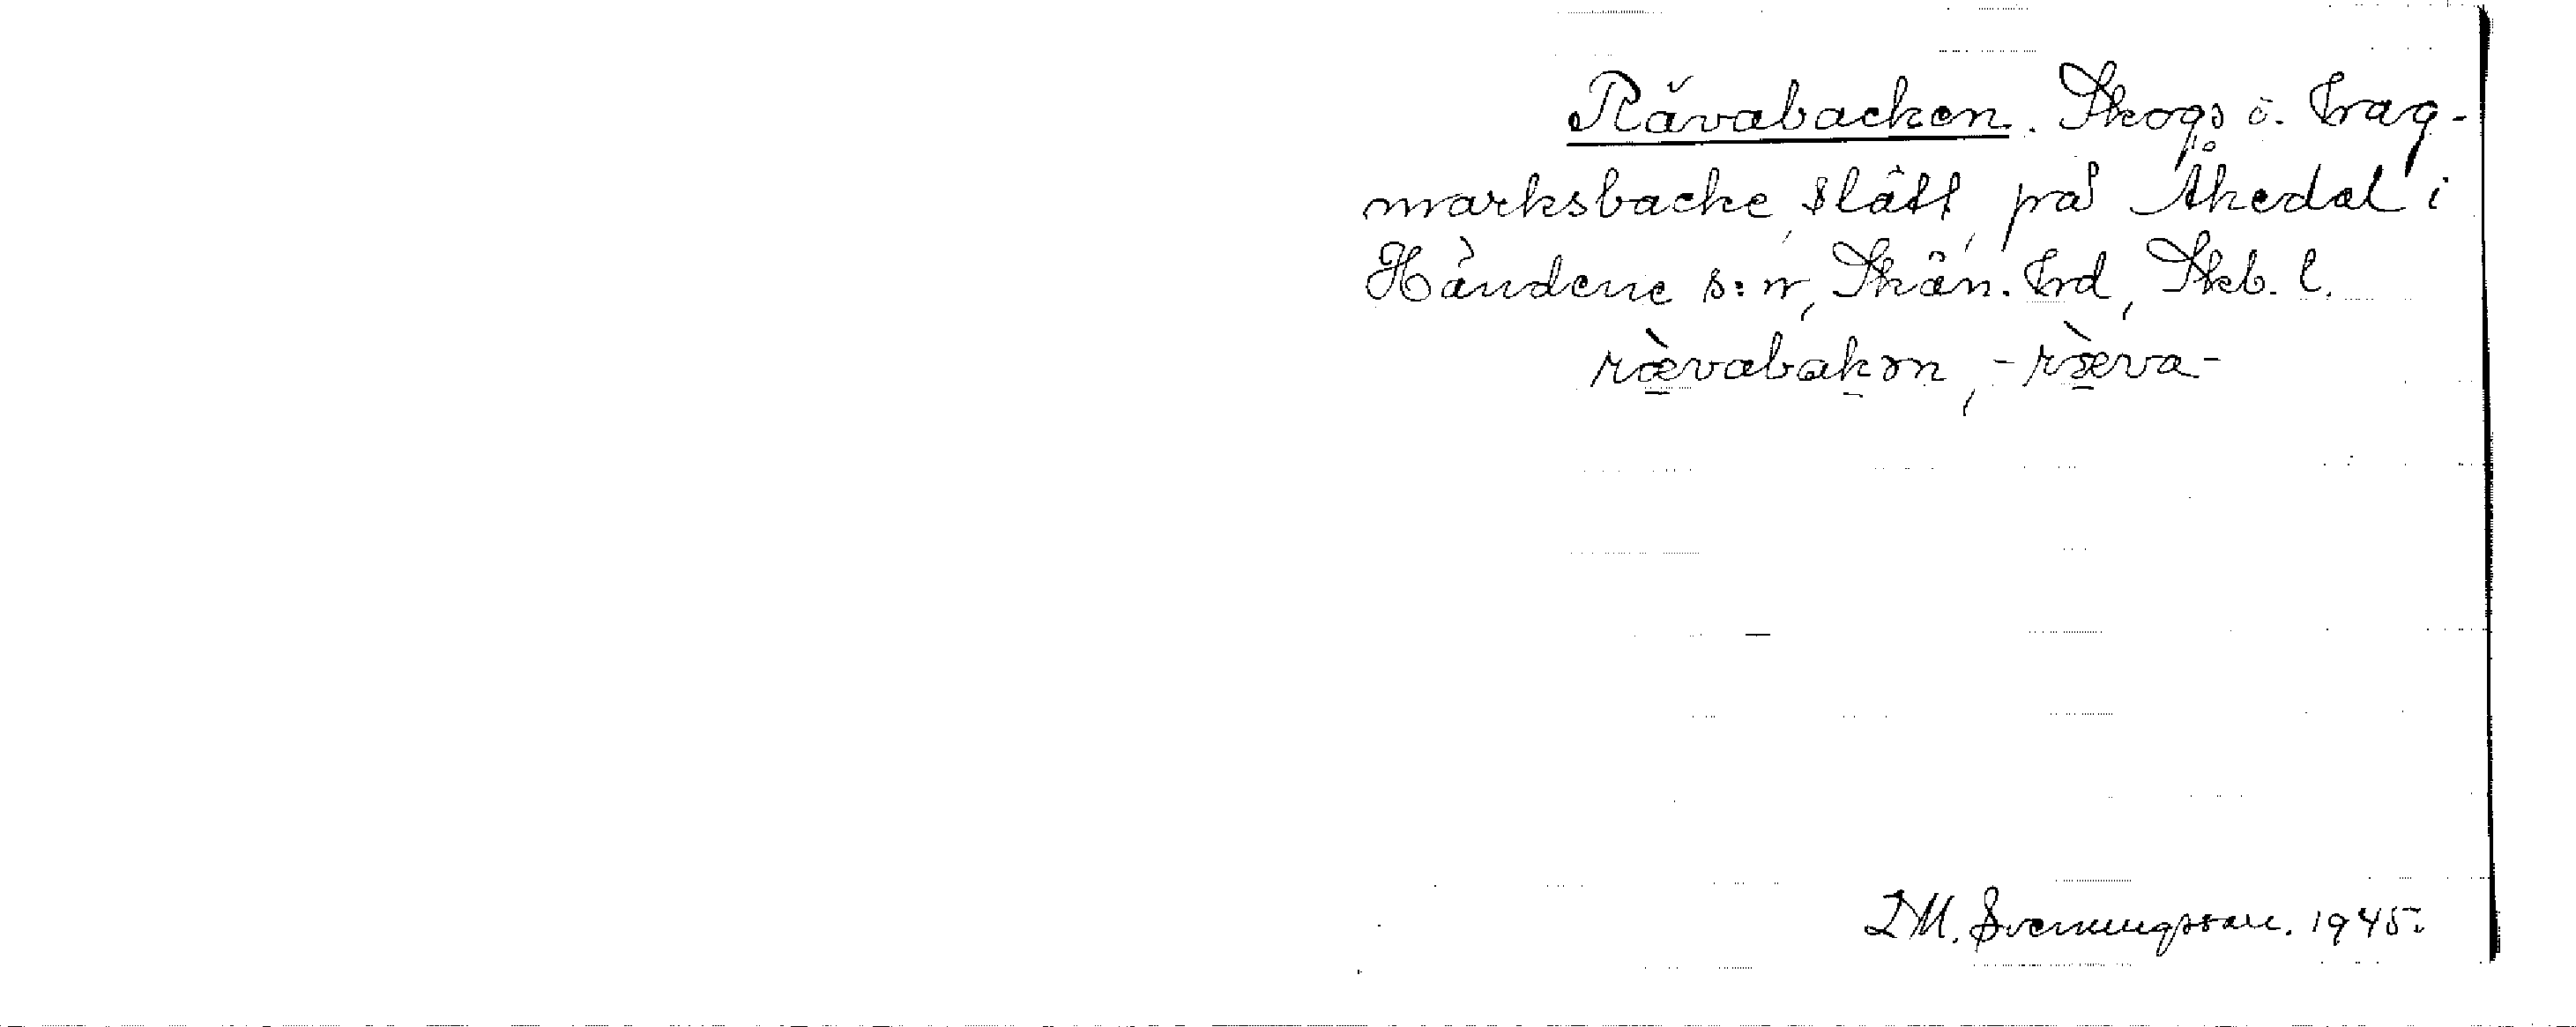 Rävabacken. Skogs o. Hag-
marksbacke, slätt, på Åkedal i
Händene s:n, Skån. hrd, Skb. l.
rævabakən, -ræva-
D M. Svenningsson. 1945.